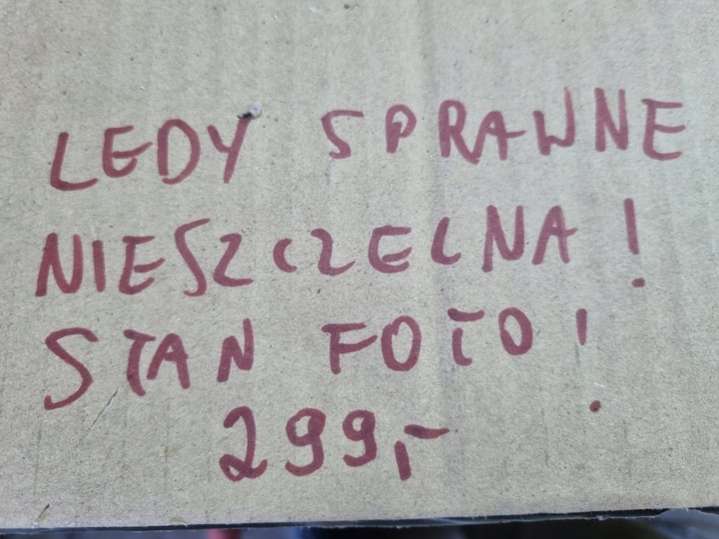 LEDY SPRAWNE
NIESZCZELNA!
STAN FOTO!
299,-